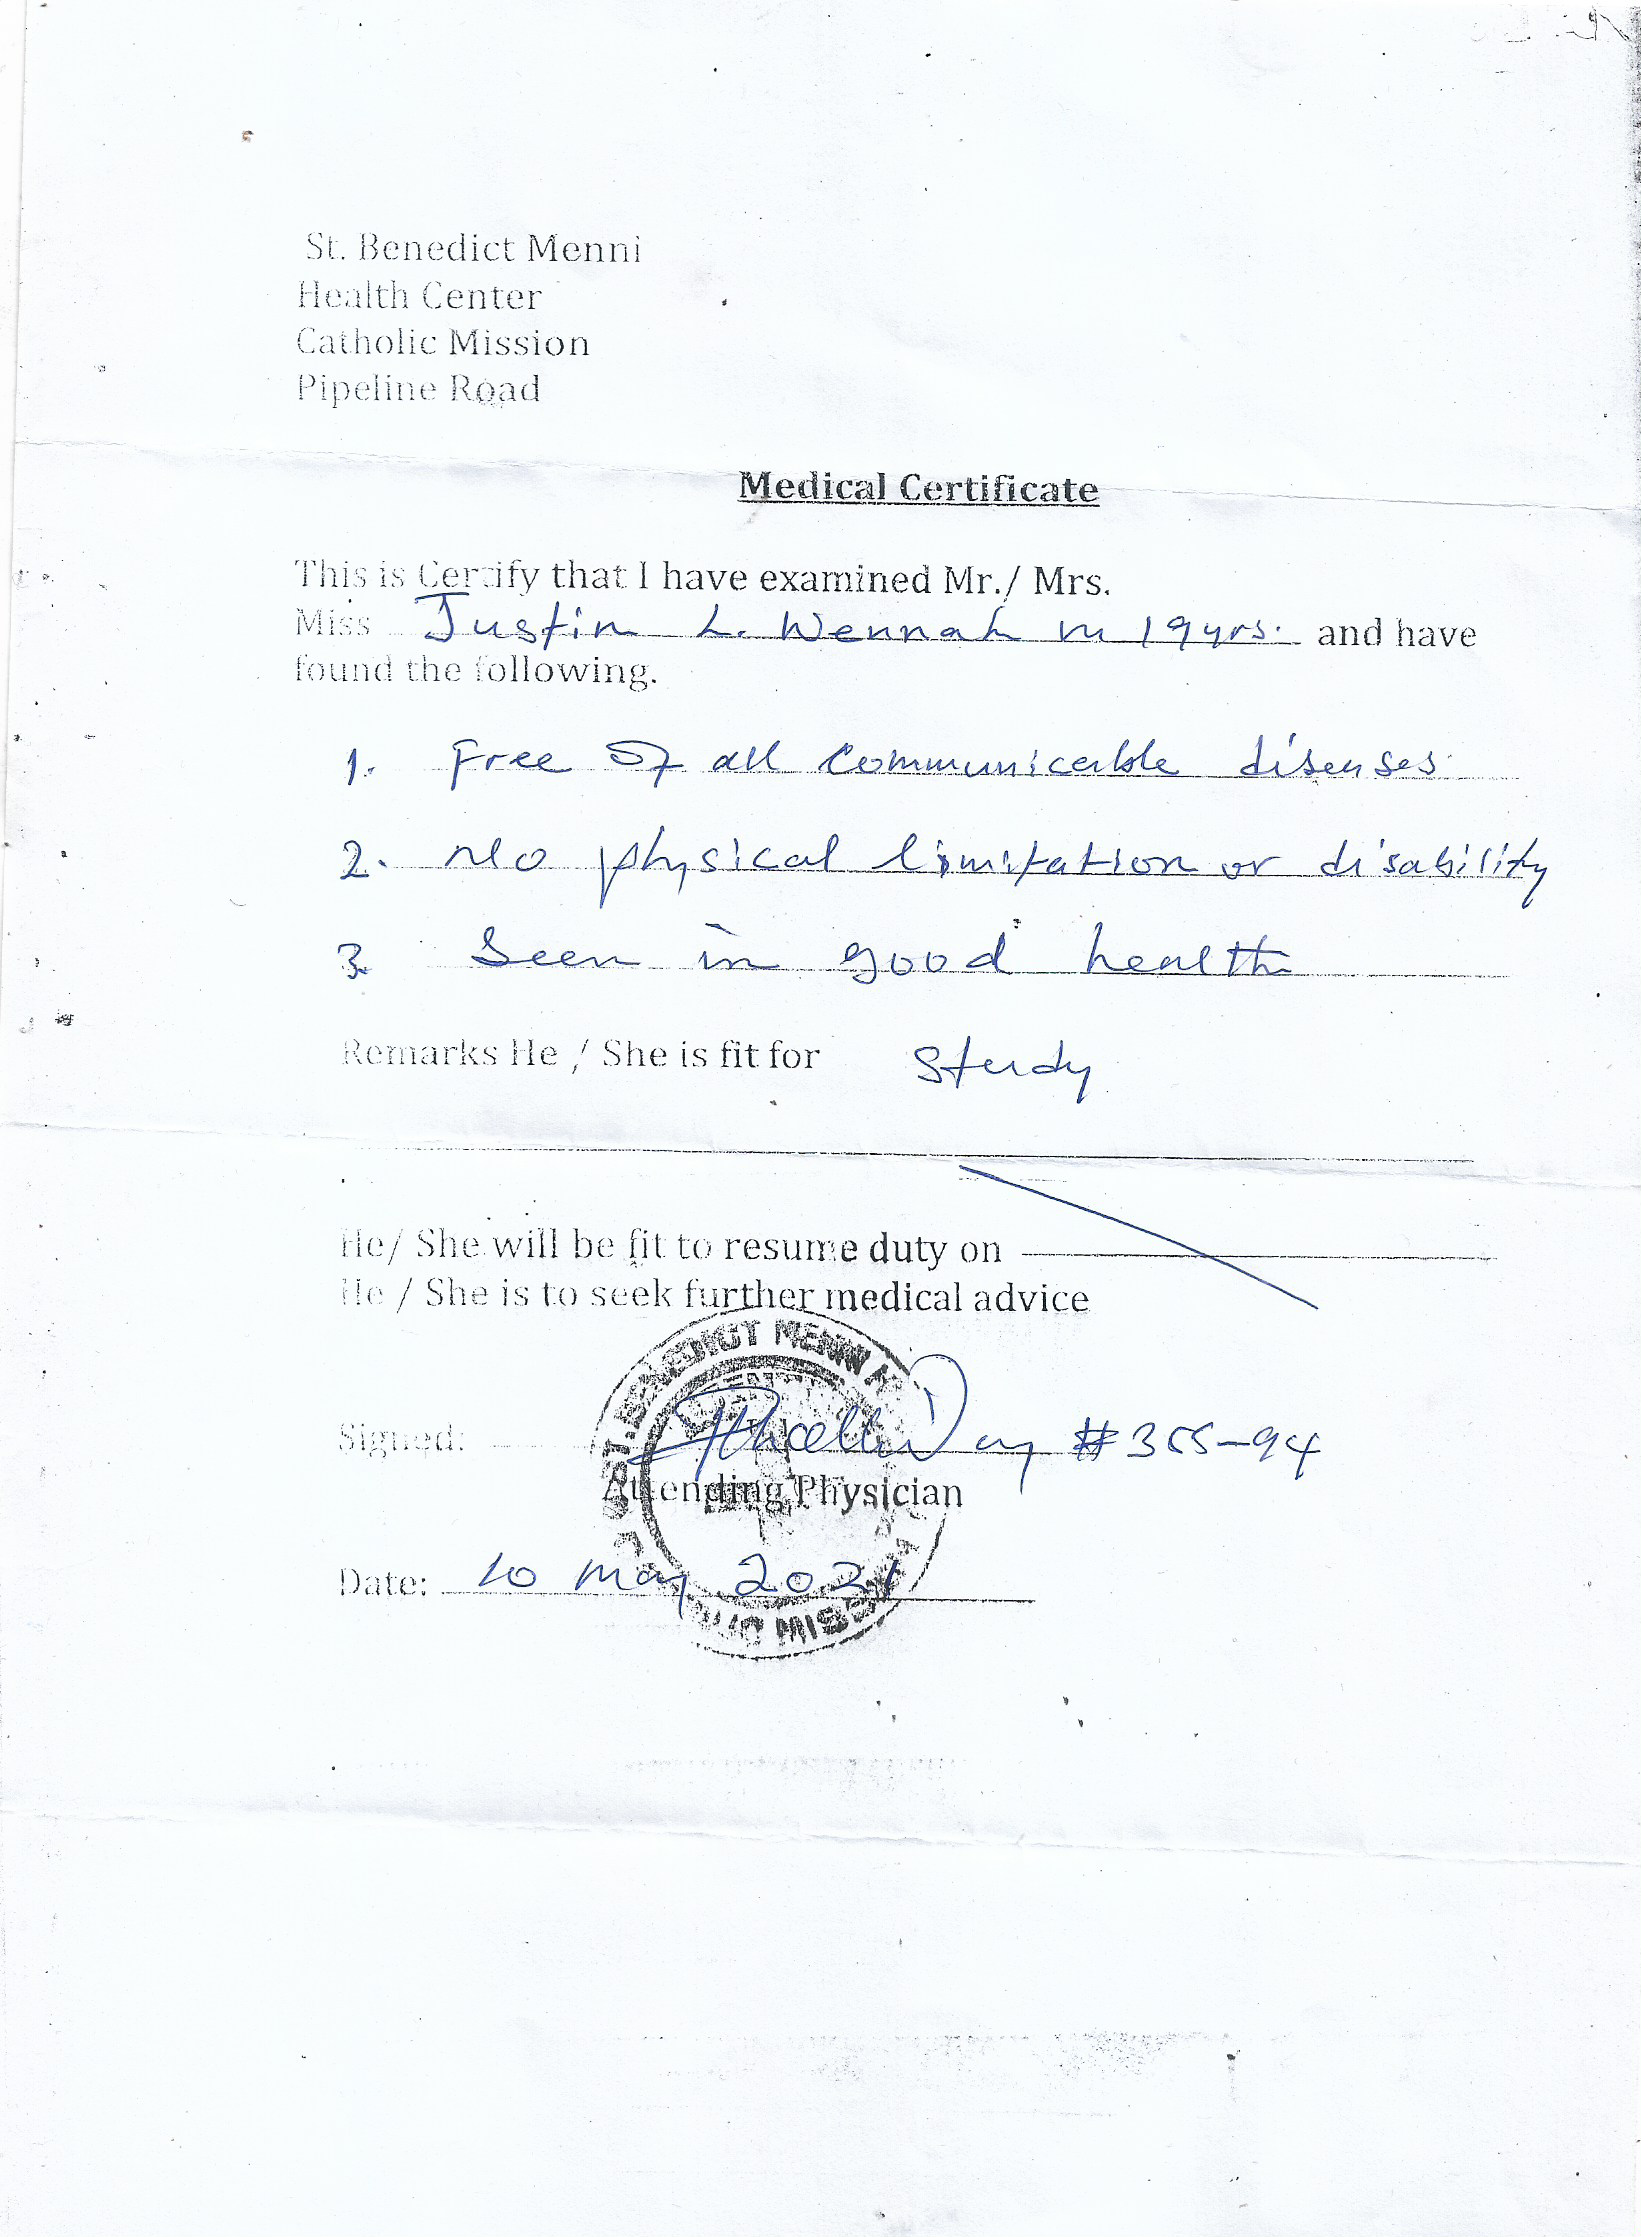 St. Benedict Menni
Health Center
Catholic Mission
Pipeline Road
Medical Certificate
This is Certify that I have examined Mr./ Mrs.
Miss Justin L. Wennah m 19yrs. and have
found the following.
1. Free of all communicable diseases
2. No physical limitation or disability
3. Seen in good health
Remarks He / She is fit for study
He/ She will be fit to resume duty on
He / She is to seek further medical advice
ST. BENEDICT MENNI
Signed: Day #355-94
Attending Physician
Date: 10 May 2021